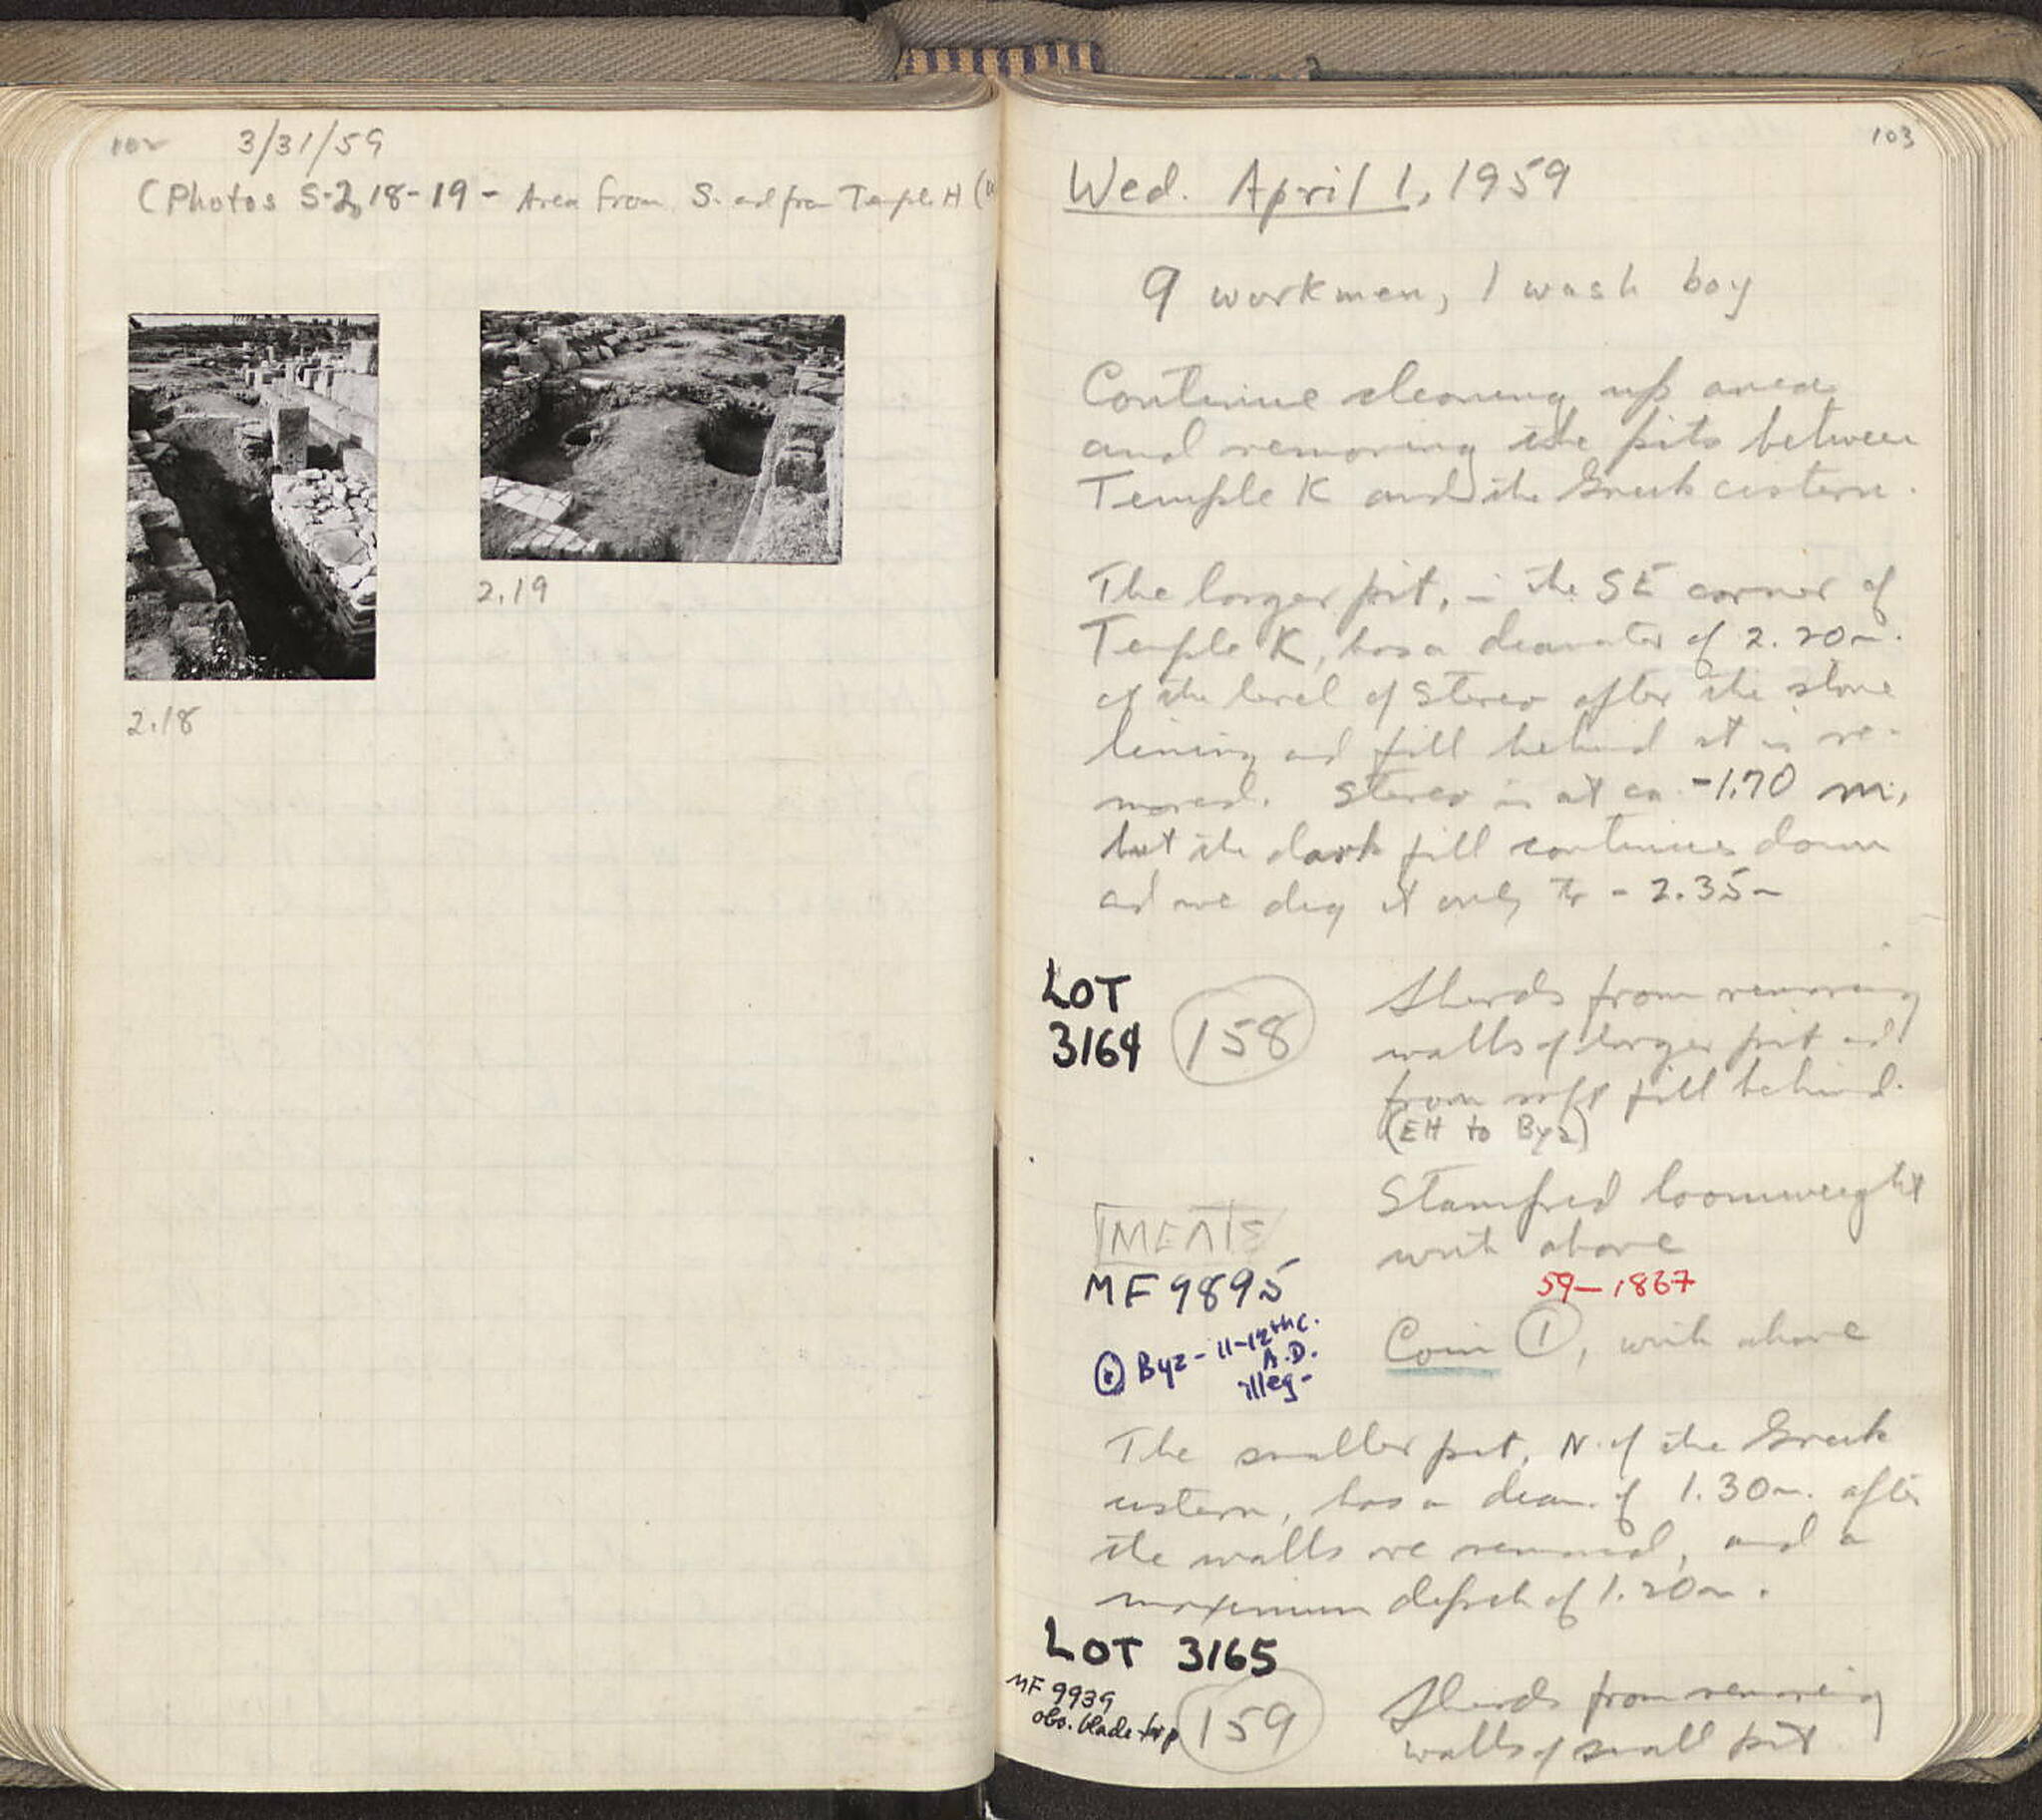 102 3/31/59
(Photos S-2, 18-19 - Area from S. and from Temple H
2.18
2.19
103
Wed. April 1, 1959
9 workmen, 1 wash boy
Continue cleaning up area
and removing the pits between
Temple K and the Greek cistern.
The larger pit, in the SE corner of
Temple K, has a diameter of 2.20m.
at the level of stereo after the stone
lining and fill behind it is re-
moved. Stereo is at ca -1.70 m,
but the dark fill continues down
and we dig it only to -2.35m
LOT
3164
158
Sherds from removing
walls of larger pit and
from soft fill behind.
(EH to Byz)
Stamped loomweight
with above
MEΛIΣ
MF 9895
59-1867
Coin 1, with above
1 Byz - 11-12th c.
A.D.
illeg-
The smaller pit, N. of the Greek
cistern, has a diam. of 1.30m. after
the walls are removed, and a
maximum depth of 1.20m.
LOT 3165
MF 9939
obs. blade frg
159
Sherds from removing
walls of small pit